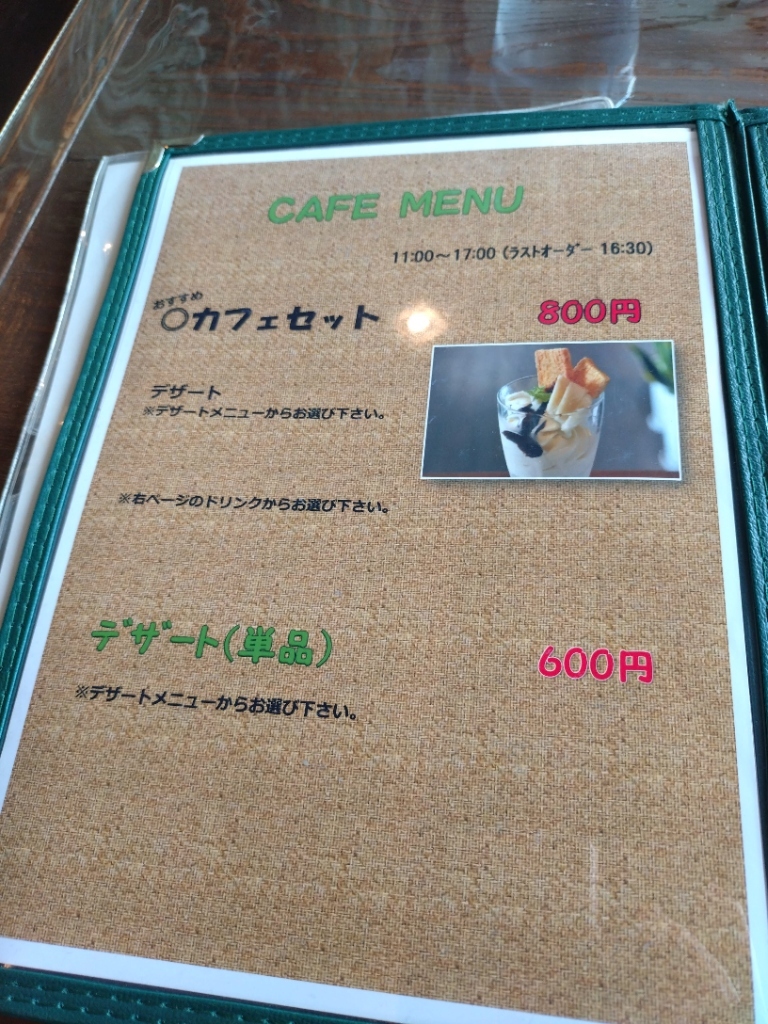 CAFE MENU
11:00～17:00 (ラストオーダー 16:30)
おすすめ
○カフェセット 800円
デザート
※デザートメニューからお選び下さい。
※右ページのドリンクからお選び下さい。
デザート(単品) 600円
※デザートメニューからお選び下さい。